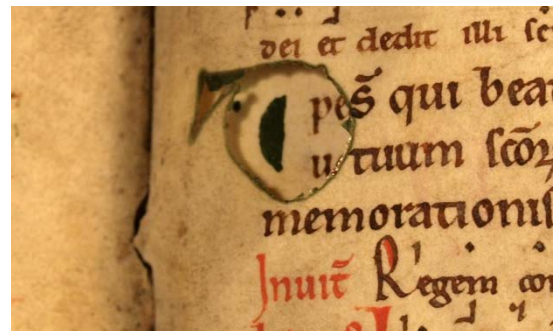 dei et dedit illi sc
Dpes̄ qui beat
uıtuum scōꝝ
memorationis
Inuit̄ Regem con